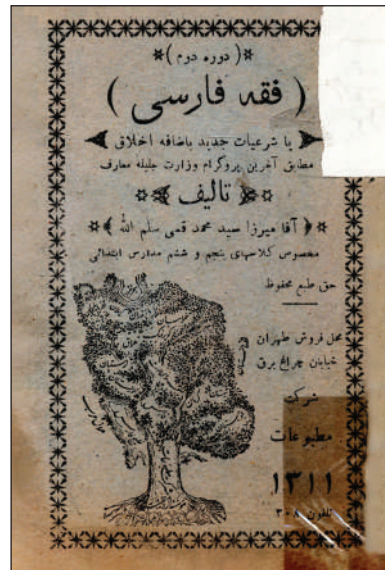 (دوره دوم)
(فقه فارسی)
یا شرعیات جدید باضافه اخلاق
مطابق آخرین پروگرام وزارت جلیله معارف
تالیف
آقا میرزا سید محمد قمی سلم الله
مخصوص کلاسهای پنجم و ششم مدارس ابتدائی
حق طبع محفوظ
محل فروش طهران
خیابان چراغ برق
شرکت
مطبوعات
۱۳۱۱
تلفون ۳۰۸